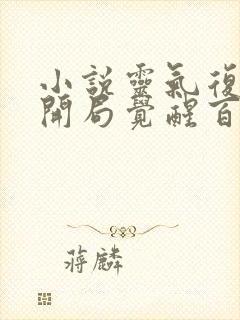 小説靈氣復
開局覺醒百
蔣麟